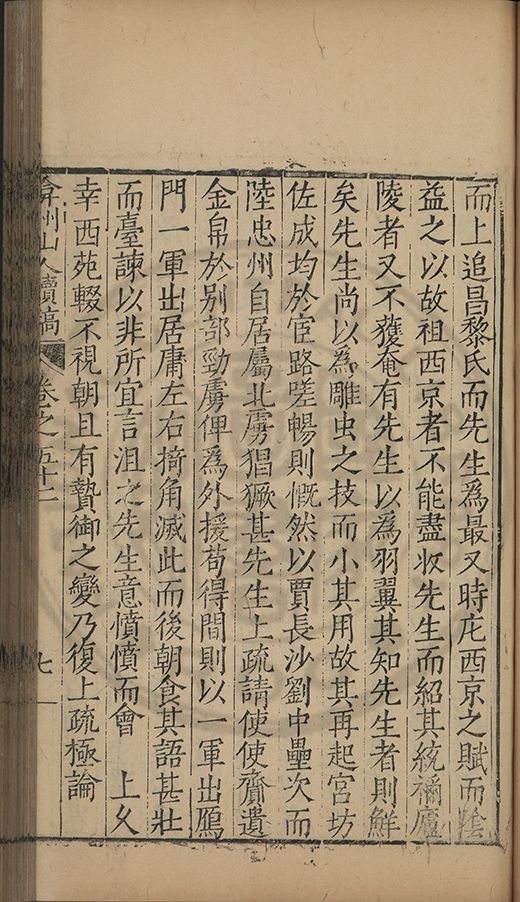 而上追昌黎氏而先生爲最又時庀西京之賦而陰
益之以故祖西京者不能盡收先生而紹其統禰廬
陵者又不獲奄有先生以爲羽翼其知先生者則鮮
矣先生尚以爲雕虫之技而小其用故其再起宮坊
佐成均於宦路蹉暢則慨然以賈長沙劉中壘次而
陸忠州自居屬北虜猖獗甚先生上疏請使使齎遺
金帛於别部勁虜俾爲外援苟得間則以一軍出鴈
門一軍出居庸左右掎角滅此而後朝食其語甚壯
而臺諫以非所宜言沮之先生意憤憤而會　上久
幸西苑輟不視朝且有贄御之變乃復上疏極論
弇州山人續稿　卷之五十二　七